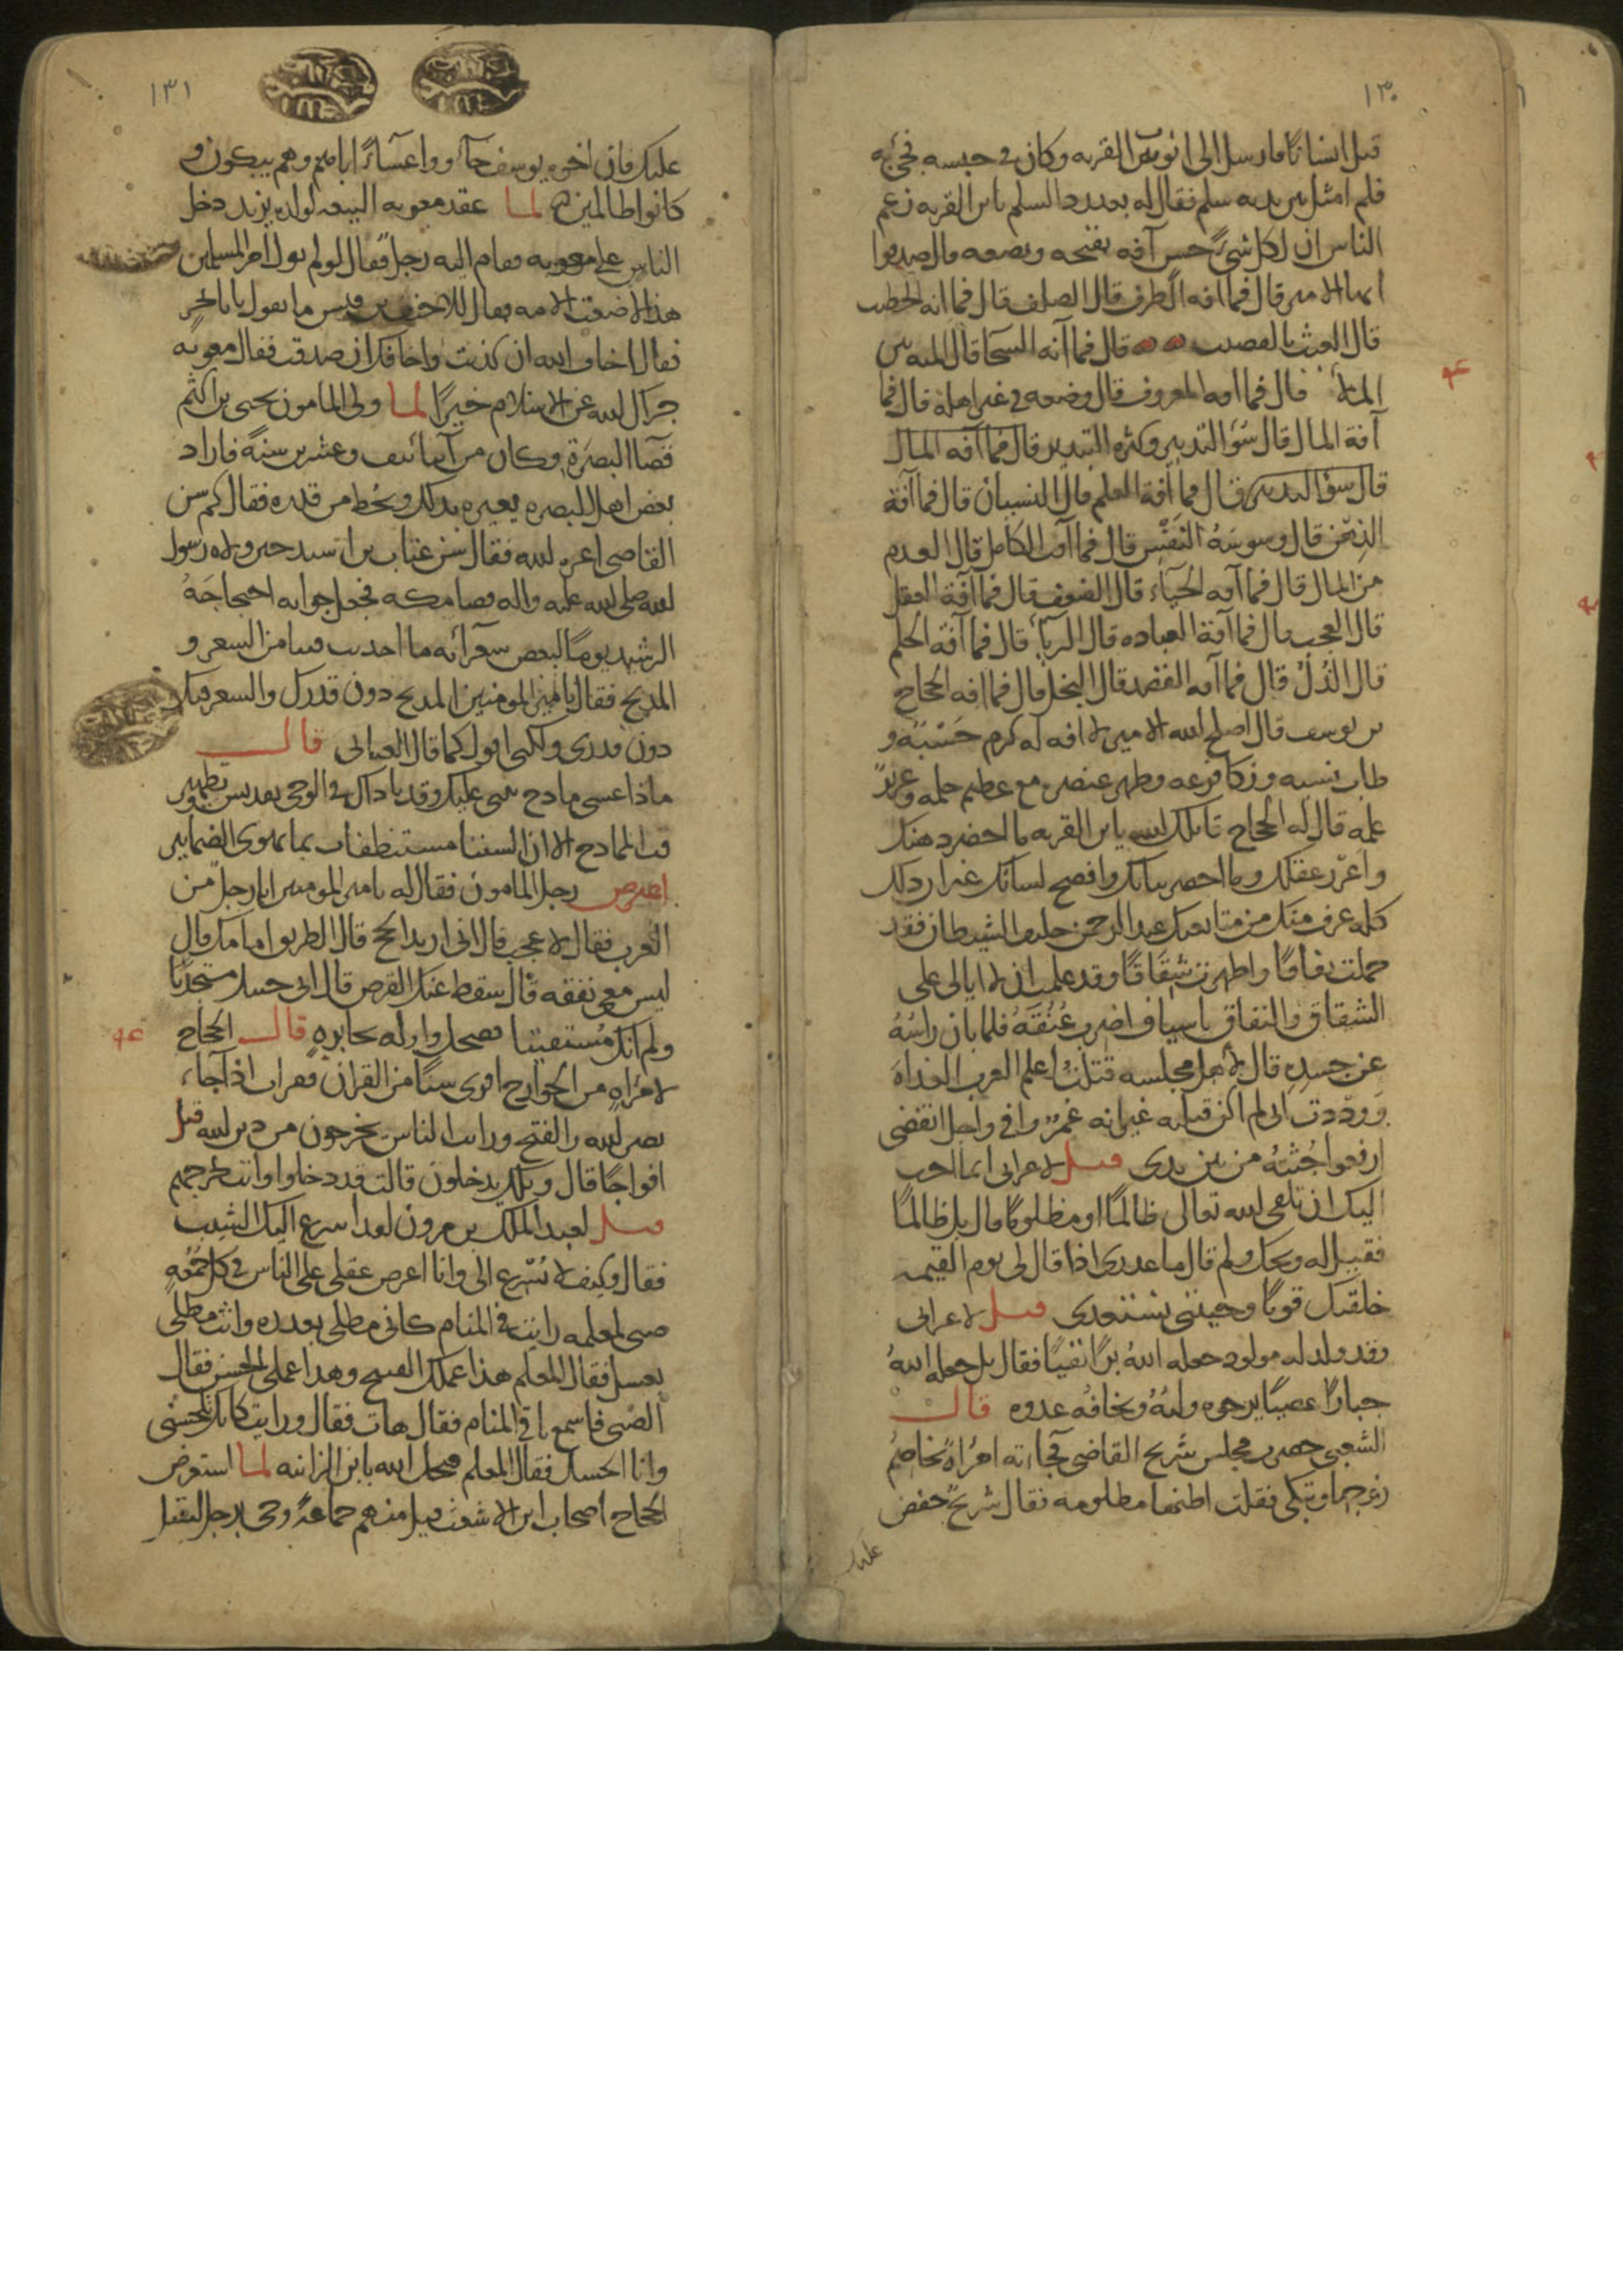 ١٣٠
قبل انسانا فارسل الى ايوب بن القريه وكان في حبسه فجئ به
فلم امثل بين يديه سلم فقال له بعد رد السلم يا بن القريه زعم
الناس ان لكل شئ حسن آفه تقبحه وتضعه قال صدقوا
ايها الامير قال فما افه الظرف قال الصلف قال فما افه الخطب
قال العبث بالقصيب قال فما آفه السخا قال المنه من
الملأ قال فما افه المعروف قال وضعه في غير اهله قال فما
آفة المال قال سؤ التدبير وكثره التبذير قال فما آفه المال
قال سؤ التدبير قال فما آفة العلم قال النسيان قال فما آفة
الذهن قال وسوسة النفس قال فما آفه الكامل قال العدم
من المال قال فما آفه الحياء قال الضعف قال فما آفة العقل
قال العجب قال فما آفة العباده قال الرياء قال فما آفه الحلم
قال الذل قال فما آفه القصد قال البخل قال فما افه الحجاج
بن يوسف قال اصلح الله الامير لا افه له كرم حسبه و
طاب نسبه وزكا فرعه وطهر عنصره مع عظيم حلمه وغزير
علمه قال له الحجاج قاتلك الله يا بن القريه ما احضر ذهنك
واغزر عقلك وما احصر بيانك وافصح لسانك غير ان ذلك
كله عرف منك من متابعتك عبد الرحمن حليف الشيطان فقد
حملت نفاقا واظهرت شقاقا وقد علمت ان لا ابالي على
الشقاق والنفاق يا سياف اضرب عنقه فلما بان راسه
عن جسده قال لاهل مجلسه قتلت اعلم العرب الغداة
ووددت اني لم اكن قتلته غير انه عمر وافى واجل انقضى
ارفعوا جثته من بين يدى قيل لاعرابى ايما احب
اليك ان تلقى الله تعالى ظالما او مظلوما قال بل ظالما
فقيل له ويحك ولم قال ما عذرى اذا قال لى يوم القيمه
خلقتك قويا وجيتنى تستعدى قيل لاعرابى
وقد ولد له مولود جعله الله برا تقيا فقال بل جعله الله
جبارا عصيا يرجوه وليه ويخافه عدوه قال
الشعبى حضرت مجلس شريح القاضى فجاءته امراة تخاصم
زوجها وتبكى فقلت اظنها مظلومه فقال شريح خفض
عليك
١٣١
عليك فان اخوه يوسف جآؤ واعشاء اباهم وهم يبكون و
كانوا ظالمين لما عقد معويه البيعه لولده يزيد دخل
الناس على معويه فقام اليه رجل فقال لو لم تول امر المسلمين
هذا لاضعت الامه فقال للاحنف بن قيس ما تقول يا بالبحر
فقال اخاف الله ان كذبت واخافك ان صدقت فقال معويه
جزاك الله عن الاسلام خيرا لما ولى المامون يحيى بن اكثم
قضآ البصرة وكان من ابنا نيف وعشرين سنة فاراد
بعض اهل البصره يعيره بذلك ويحط من قدره فقال كم سن
القاضى اعزه الله فقال سن عتاب بن اسيد حين ولاه رسول
الله صلى الله عليه واله قضا مكه فجعل جوابه احتجاجة
الرشيد يوما لبعض شعرائه ما احدثت فينا من الشعر و
المديح فقال يا امير المومنين المديح دون قدرك والشعر فيك
دون قدرى ولكنى اقول كما قال العتابى قال
ماذا عسى مادح يثنى عليك وقد ناداك في الوحى تقديس وتطهير
فت المادح الا ان السننا مستنطفات بما تهوى الضمايير
اعترض رجل المامون فقال له يا امير المومنين انا رجل من
العرب فقال لا عجب قال انى اريد الحج قال الطريق امامك قال
ليس معى نفقه قال سقط عنك الفرض قال انى جيتك مستجديا
ولم اتك مستفتيا فضحك وامر له بجايزه قال الحجاج
لامراه من الخوارج اقرى شيا من القران فقرات اذا جاء
نصر الله والفتح ورايت الناس يخرجون من دين الله
افواجا قال ويلك يدخلون قالت قد دخلوا وانت تخرجهم
قيل لعبد الملك بن مرون لقد اسرع اليك الشيب
فقال وكيف لا يسرع الى وانا اعرض عقلى على الناس في كل جمعه
صبى لمعلمه رايت في المنام كانى مطلى بعذره وانت مطلى
بعسل فقال المعلم هذا عملك القبيح وهذا عملى الحسن فقال
الصبى فاسمع باقى المنام فقال هات فقال ورايت كانك تلحسنى
وانا الحسك فقال المعلم قبحك الله يا بن الزانيه لما استعرض
الحجاج اصحاب ابن الاشعث قيل منهم جماعة وجى برجل ليقتل